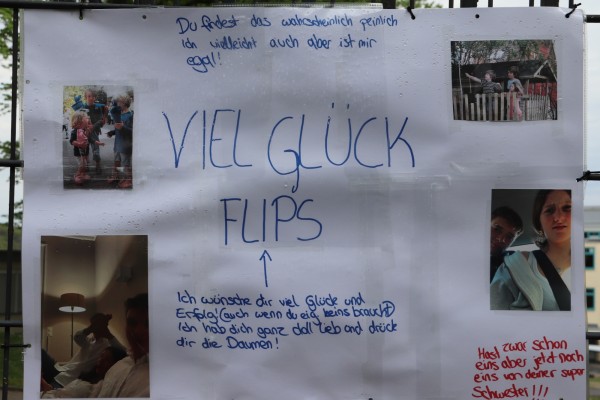 Du findest das wahrscheinlich peinlich
Ich vielleicht auch aber ist mir
egal!
VIEL GLÜCK
FLIPS
Ich wünsche dir viel Glück und
Erfolg! (auch wenn du eig. keins brauchst)
Ich hab dich ganz doll lieb und drück
dir die Daumen!
Hast zwar schon
eins aber jetzt noch
eins von deiner super
Schwester!!!